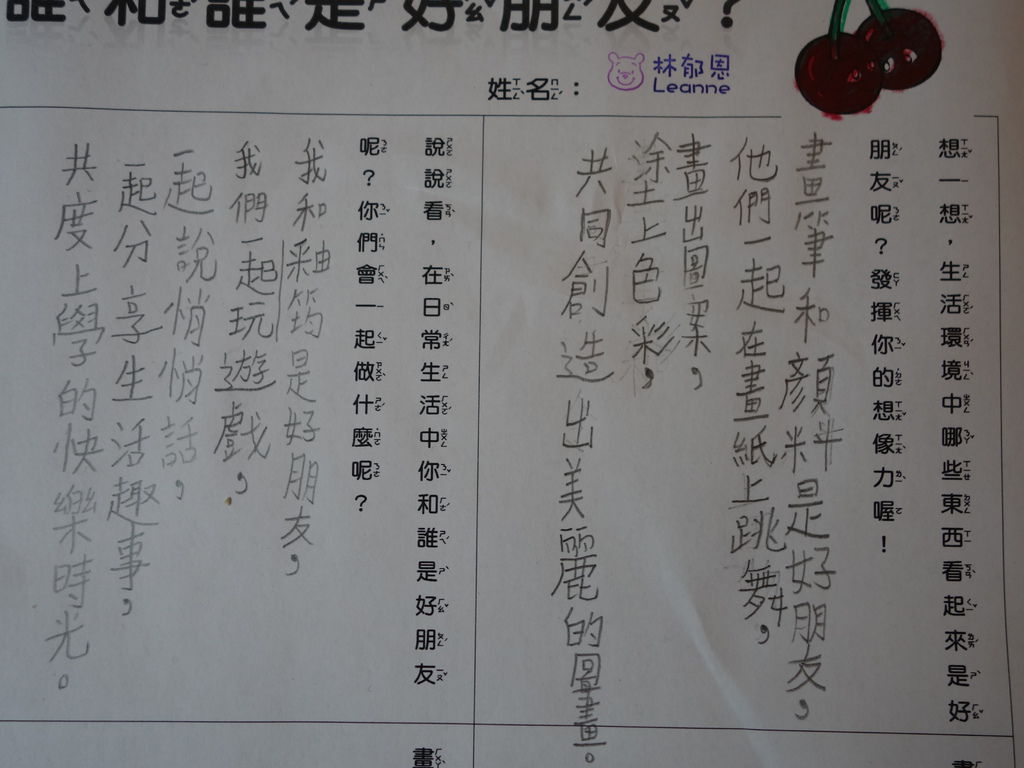 誰和誰是好朋友？
姓名：
林郁恩
Leanne
想一想，生活環境中哪些東西看起來是好
朋友呢？發揮你的想像力喔！
畫筆和顏料是好朋友，
他們一起在畫紙上跳舞，
畫出圖案，
塗上色彩，
共同創造出美麗的圖畫。
說說看，在日常生活中你和誰是好朋友
呢？你們會一起做什麼呢？
我和釉筠是好朋友，
我們一起玩遊戲，
一起說悄悄話，
一起分享生活趣事，
共度上學的快樂時光。
畫
畫